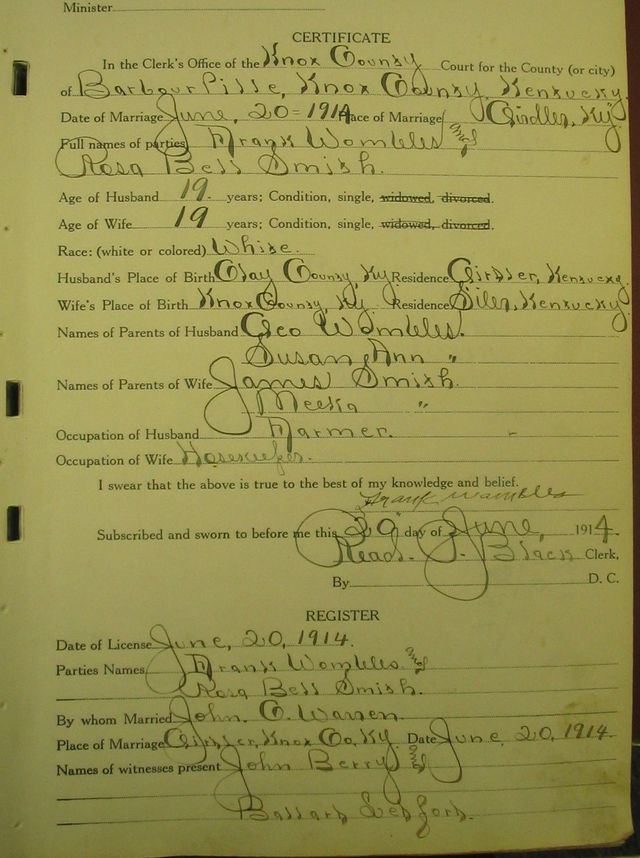 Minister
CERTIFICATE
In the Clerk's Office of the Knox County Court for the County (or city)
of Barbourville, Knox County, Kentucky
Date of Marriage June, 20 = 1914 Place of Marriage Girdler, Ky
Full names of parties Frank Wombles and
Rosa Bell Smith.
Age of Husband 19. years; Condition, single, widowed, divorced.
Age of Wife 19 years; Condition, single, widowed, divorced.
Race: (white or colored) White.
Husband's Place of Birth Clay County, Ky Residence Girdler, Kentucky
Wife's Place of Birth Knox County, Ky. Residence Siler, Kentucky
Names of Parents of Husband Geo Wombles.
Susan Ann "
Names of Parents of Wife James Smith.
Meeka "
Occupation of Husband Farmer.
Occupation of Wife Housekeeper.
I swear that the above is true to the best of my knowledge and belief.
Frank Wombles
Subscribed and sworn to before me this 20 day of June, 1914.
Read. P. Black Clerk,
By D. C.
REGISTER
Date of License June, 20, 1914.
Parties Names Frank Wombles and
Rosa Bell Smith.
By whom Married John. C. Warren
Place of Marriage Girdler, Knox Co, Ky. Date June, 20, 1914
Names of witnesses present John Berry and
Ballard Ledford.